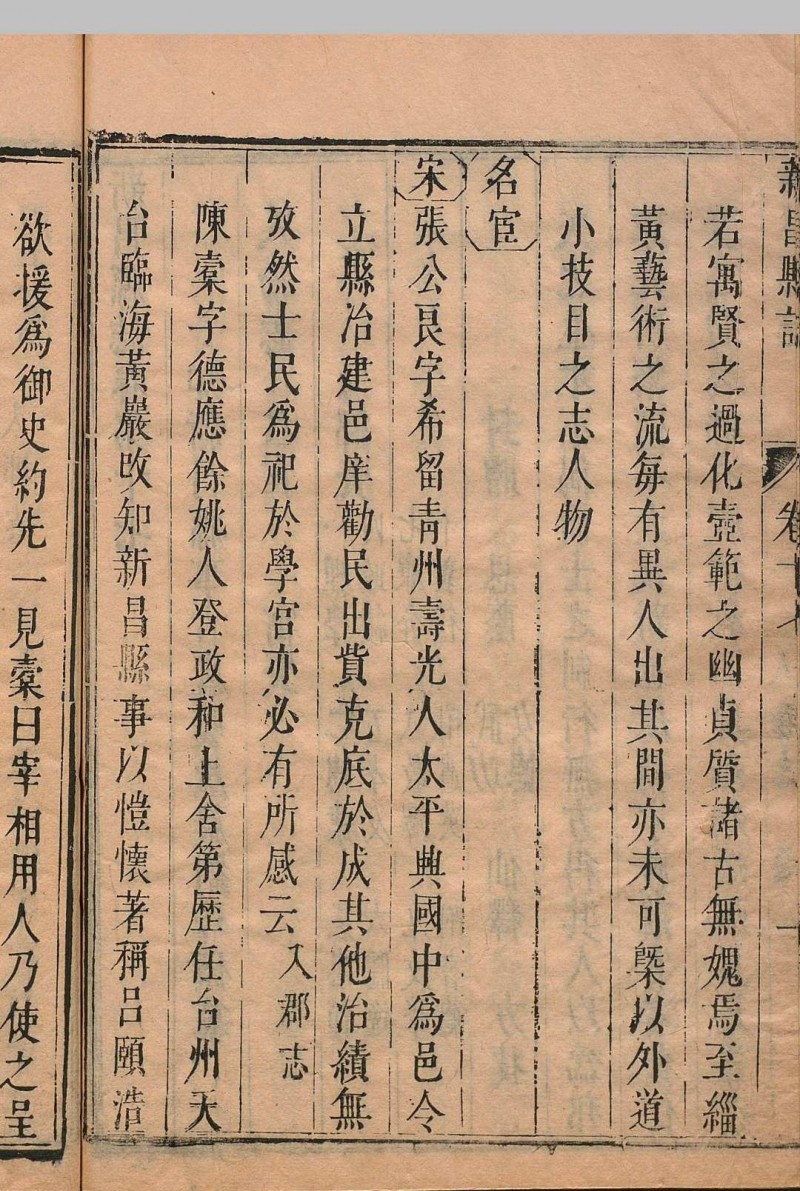 新昌縣誌 卷十
若寓賢之過化壼範之幽貞質諸古無媿焉至緇
黃藝術之流每有異人出其間亦未可槩以外道
小技目之志人物
名宦
宋張公良字希留青州壽光人太平興國中為邑令
立縣冶建邑庠勸民出貲克底於成其他治績無
攷然士民為祀於學宮亦必有所感云入郡志
陳橐字德應餘姚人登政和上舍第歷任台州天
台臨海黃巖攺知新昌縣事以愷懷著稱呂頤浩
欲援為御史約先一見橐曰宰相用人乃使之呈